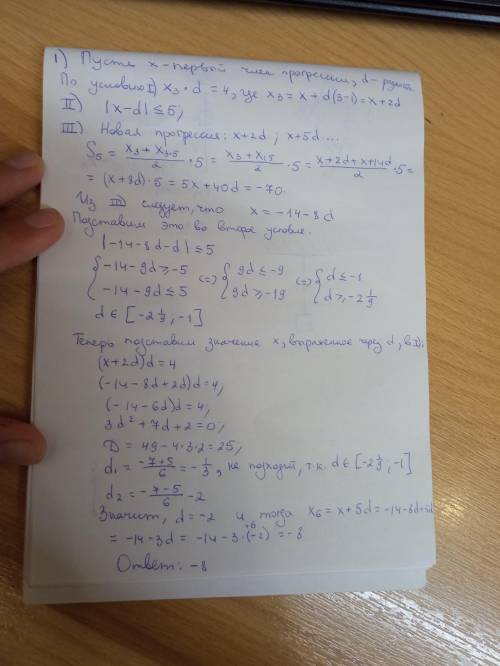 1) Пусть x - первый член прогрессии, d - разность.
По условию I) x₃ · d = 4, где x₃ = x + d(3-1) = x + 2d
II) |x - d| ≤ 5;
III) Новая прогрессия: x+2d ; x+5d ...
S₅ = (x₃ + x₃.₅)/2 · 5 = (x₃ + x₁₅)/2 · 5 = (x+2d+x+14d)/2 · 5 =
= (x+8d) · 5 = 5x + 40d = -70.
Из III следует, что x = -14 - 8d
Подставим это во второе условие.
|-14 - 8d - d| ≤ 5
{ -14 - 9d ≥ -5 (=) { 9d ≤ -9 (=) { d ≤ -1
{ -14 - 9d ≤ 5 { 9d ≥ -19 { d ≥ -2 1/9
d ∈ [-2 1/9 ; -1]
Теперь подставим значение x, выраженное через d, в I):
(x+2d)d = 4
(-14 - 8d + 2d)d = 4;
(-14 - 6d)d = 4;
3d² + 7d + 2 = 0;
D = 49 - 4·3·2 = 25;
d₁ = (-7+5)/6 = -1/3, не подходит, т.к. d ∈ [-2 1/9 ; -1]
d₂ = (-7-5)/6 - 2
Значит, d = -2 и тогда x₆ = x + 5d = -14 - 8d + 5d
= -14 - 3d = -14 - 3·(-2) = -8
+6
Ответ: -8